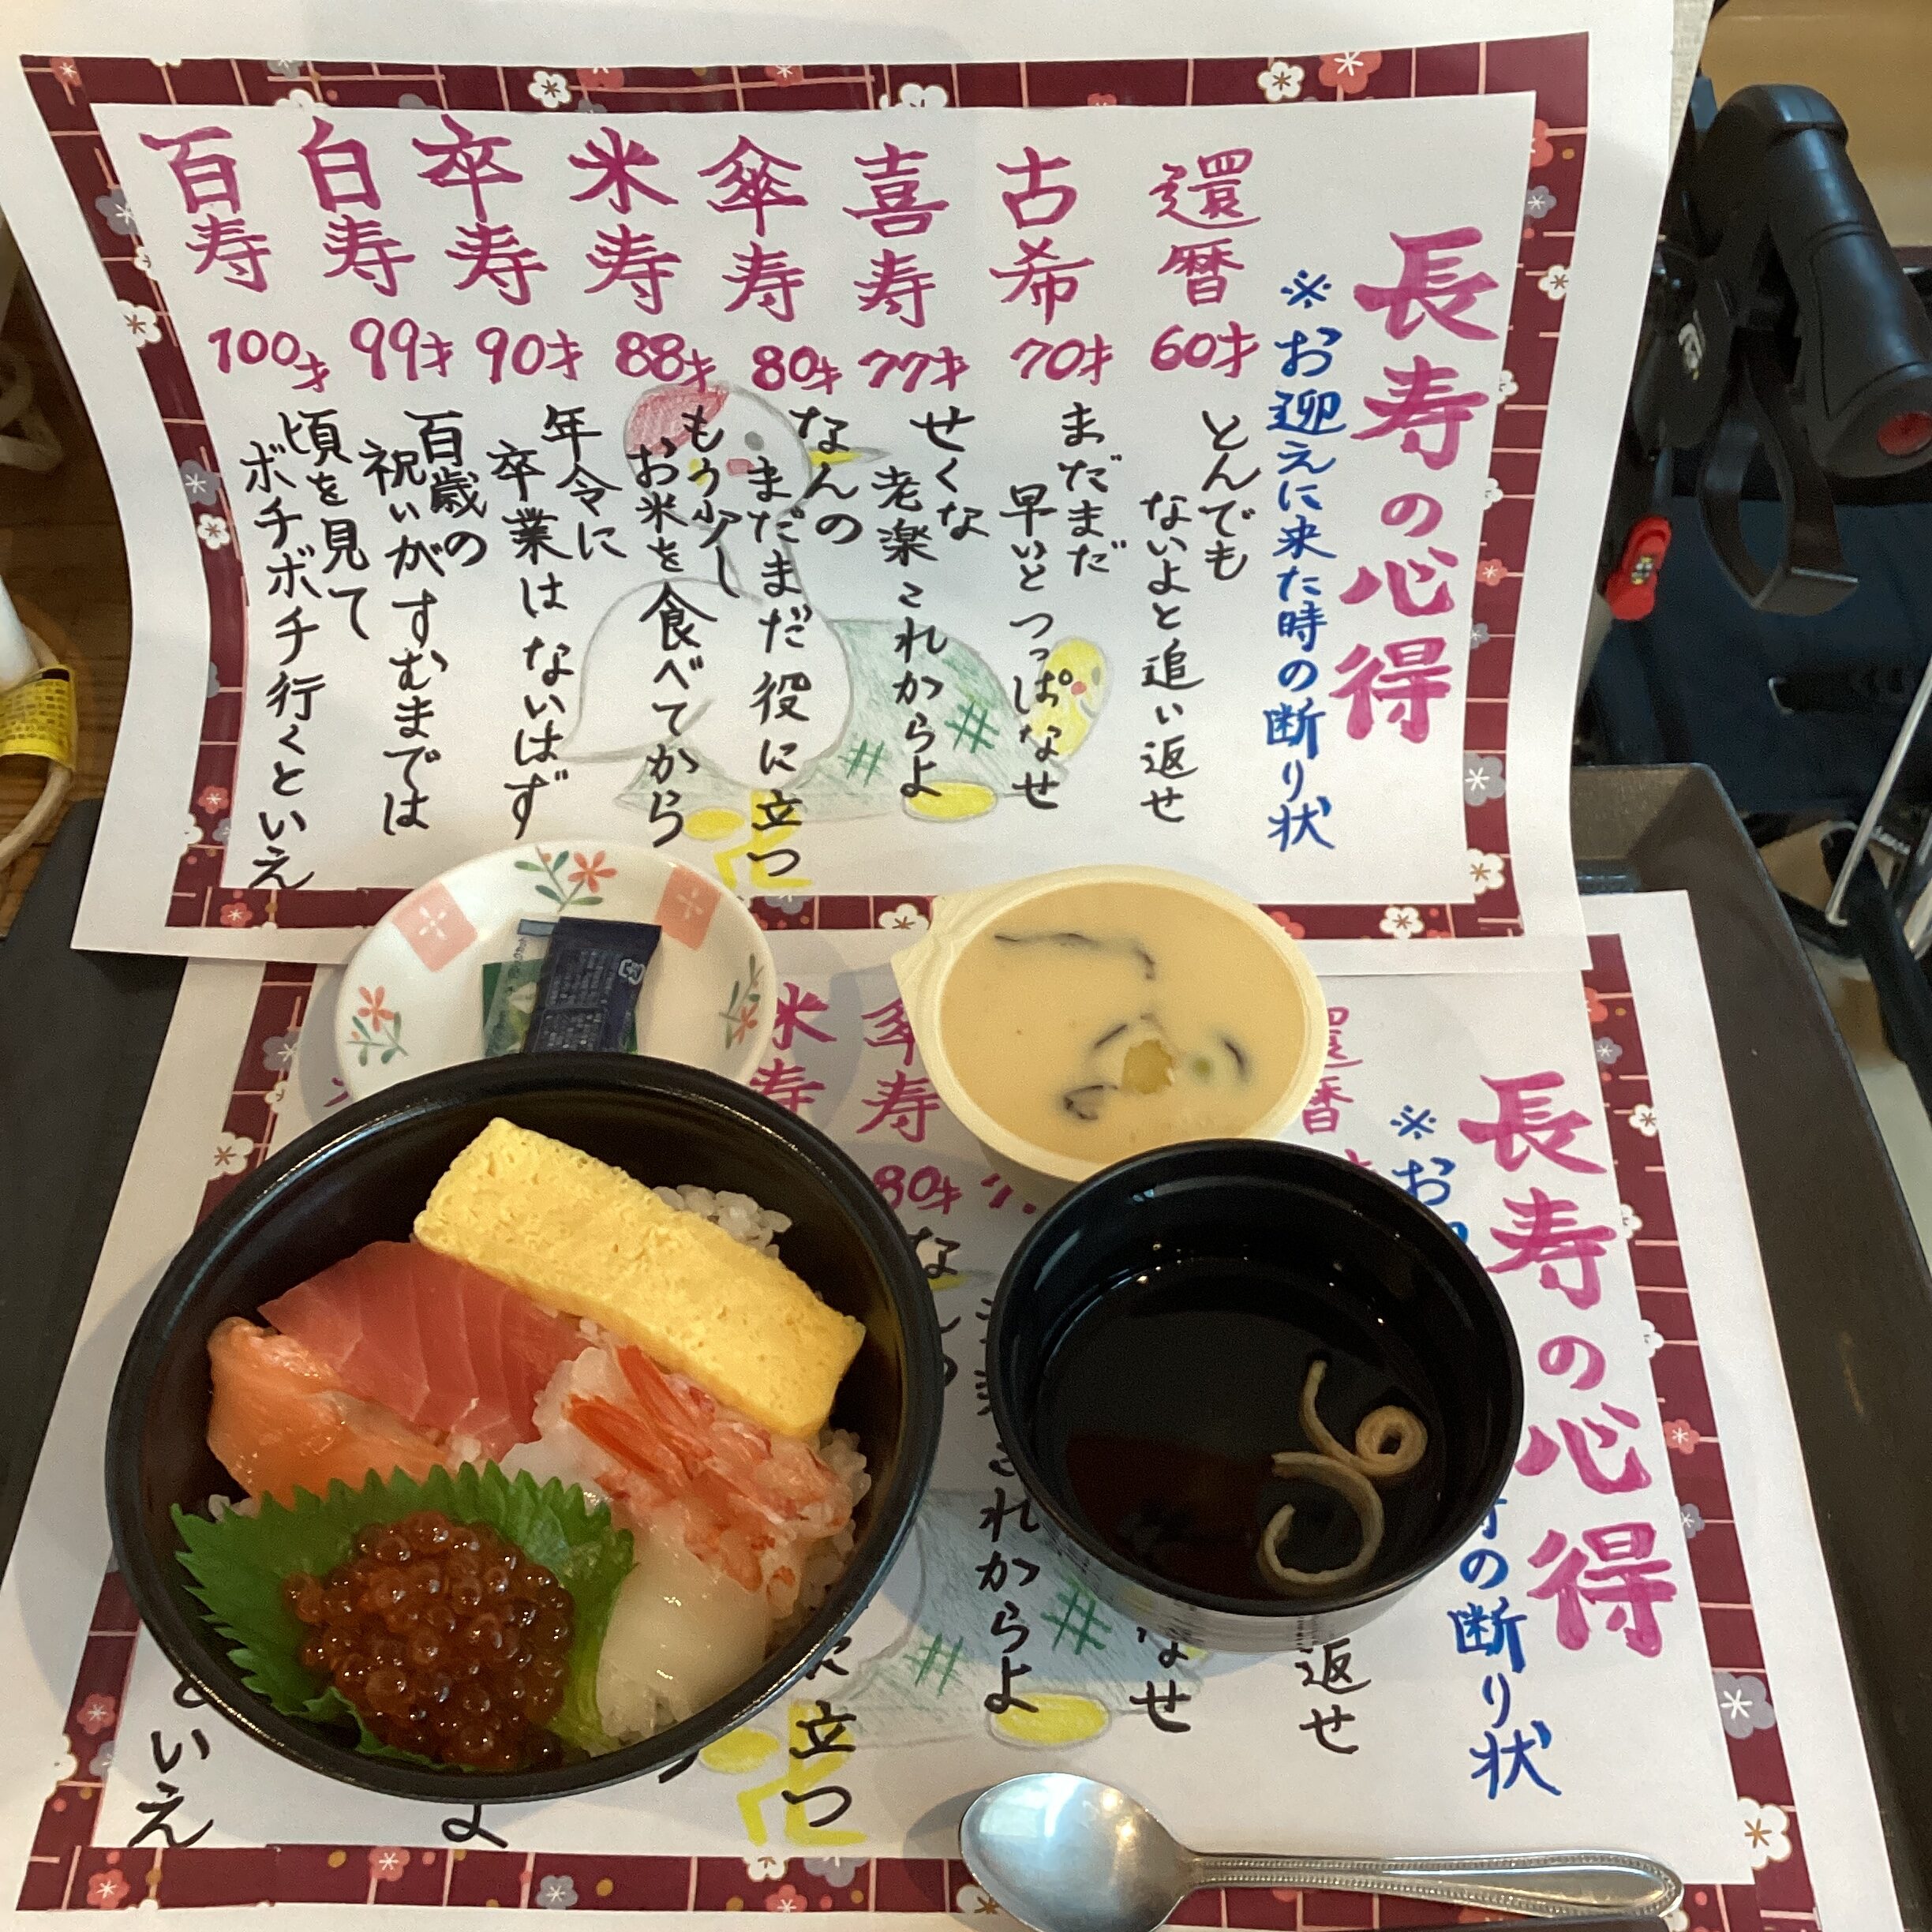 長寿の心得
※お迎えに来た時の断り状
還暦
60才
とんでも
ないよと追い返せ
古希
70才
まだまだ
早いとつっぱなせ
喜寿
77才
せくな
老楽これからよ
傘寿
80才
なんの
まだまだ役に立つ
米寿
88才
もう少し
お米を食べてから
卒寿
90才
年令に
卒業はないはず
白寿
99才
百歳の
祝いがすむまでは
百寿
100才
頃を見て
ボチボチ行くといえ
長寿の心得
※お
の断り状
暦
返せ
なせ
これからよ
傘寿
80才
な
に立つ
米寿
よ
といえ